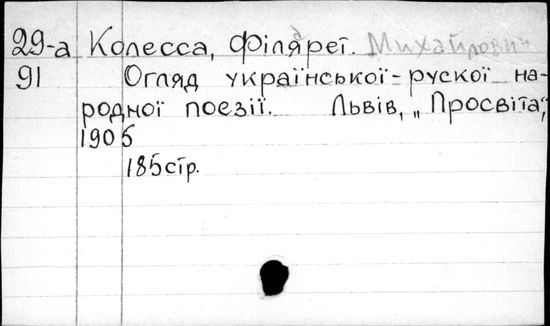 29-а Колесса, Філярет. Михайлович
91 Огляд української-рускої на-
родної поезії. Львів, „Просвіта",
1905
185стр.